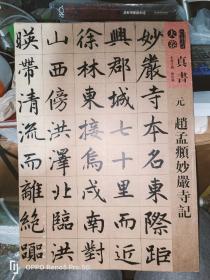 大卷
真書
元
趙孟頫妙嚴寺記
妙嚴寺本名東際距
興郡城七十里而
徐林東接烏戍南對
山西傍洪澤北臨洪
暎帶清流而離絕囂
OPPO Reno5 Pro 5G